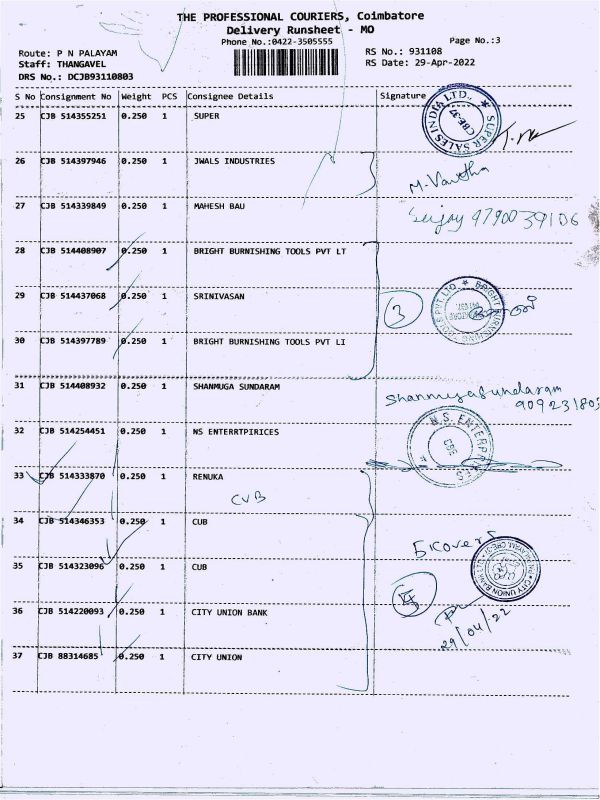 THE PROFESSIONAL COURIERS, Coimbatore
Delivery Runsheet - MO
Phone No.:0422-3505555
Page No.:3
Route: P N PALAYAM
RS No.: 931108
Staff: THANGAVEL
RS Date: 29-Apr-2022
DRS No.: DCJB93110803
S No Consignment No Weight PCS Consignee Details Signature
25 CJB 514355251 0.250 1 SUPER
SUPER SALES INDIA LTD. CBE-37
26 CJB 514397946 0.250 1 JWALS INDUSTRIES
27 CJB 514339849 0.250 1 MAHESH BAU
9790039106
28 CJB 514408907 0.250 1 BRIGHT BURNISHING TOOLS PVT LT
29 CJB 514437068 0.250 1 SRINIVASAN
3
30 CJB 514397789 0.250 1 BRIGHT BURNISHING TOOLS PVT LI
31 CJB 514408932 0.250 1 SHANMUGA SUNDARAM
Shanmugasundaram
909231803
32 CJB 514254451 0.250 1 NS ENTERRTPIRICES
N.S. ENTERPRISES CBE
33 CJB 514333870 0.250 1 RENUKA
CUB
34 CJB 514346353 0.250 1 CUB
35 CJB 514323096 0.250 1 CUB
36 CJB 514220093 0.250 1 CITY UNION BANK
29/04/22
37 CJB 88314685 0.250 1 CITY UNION